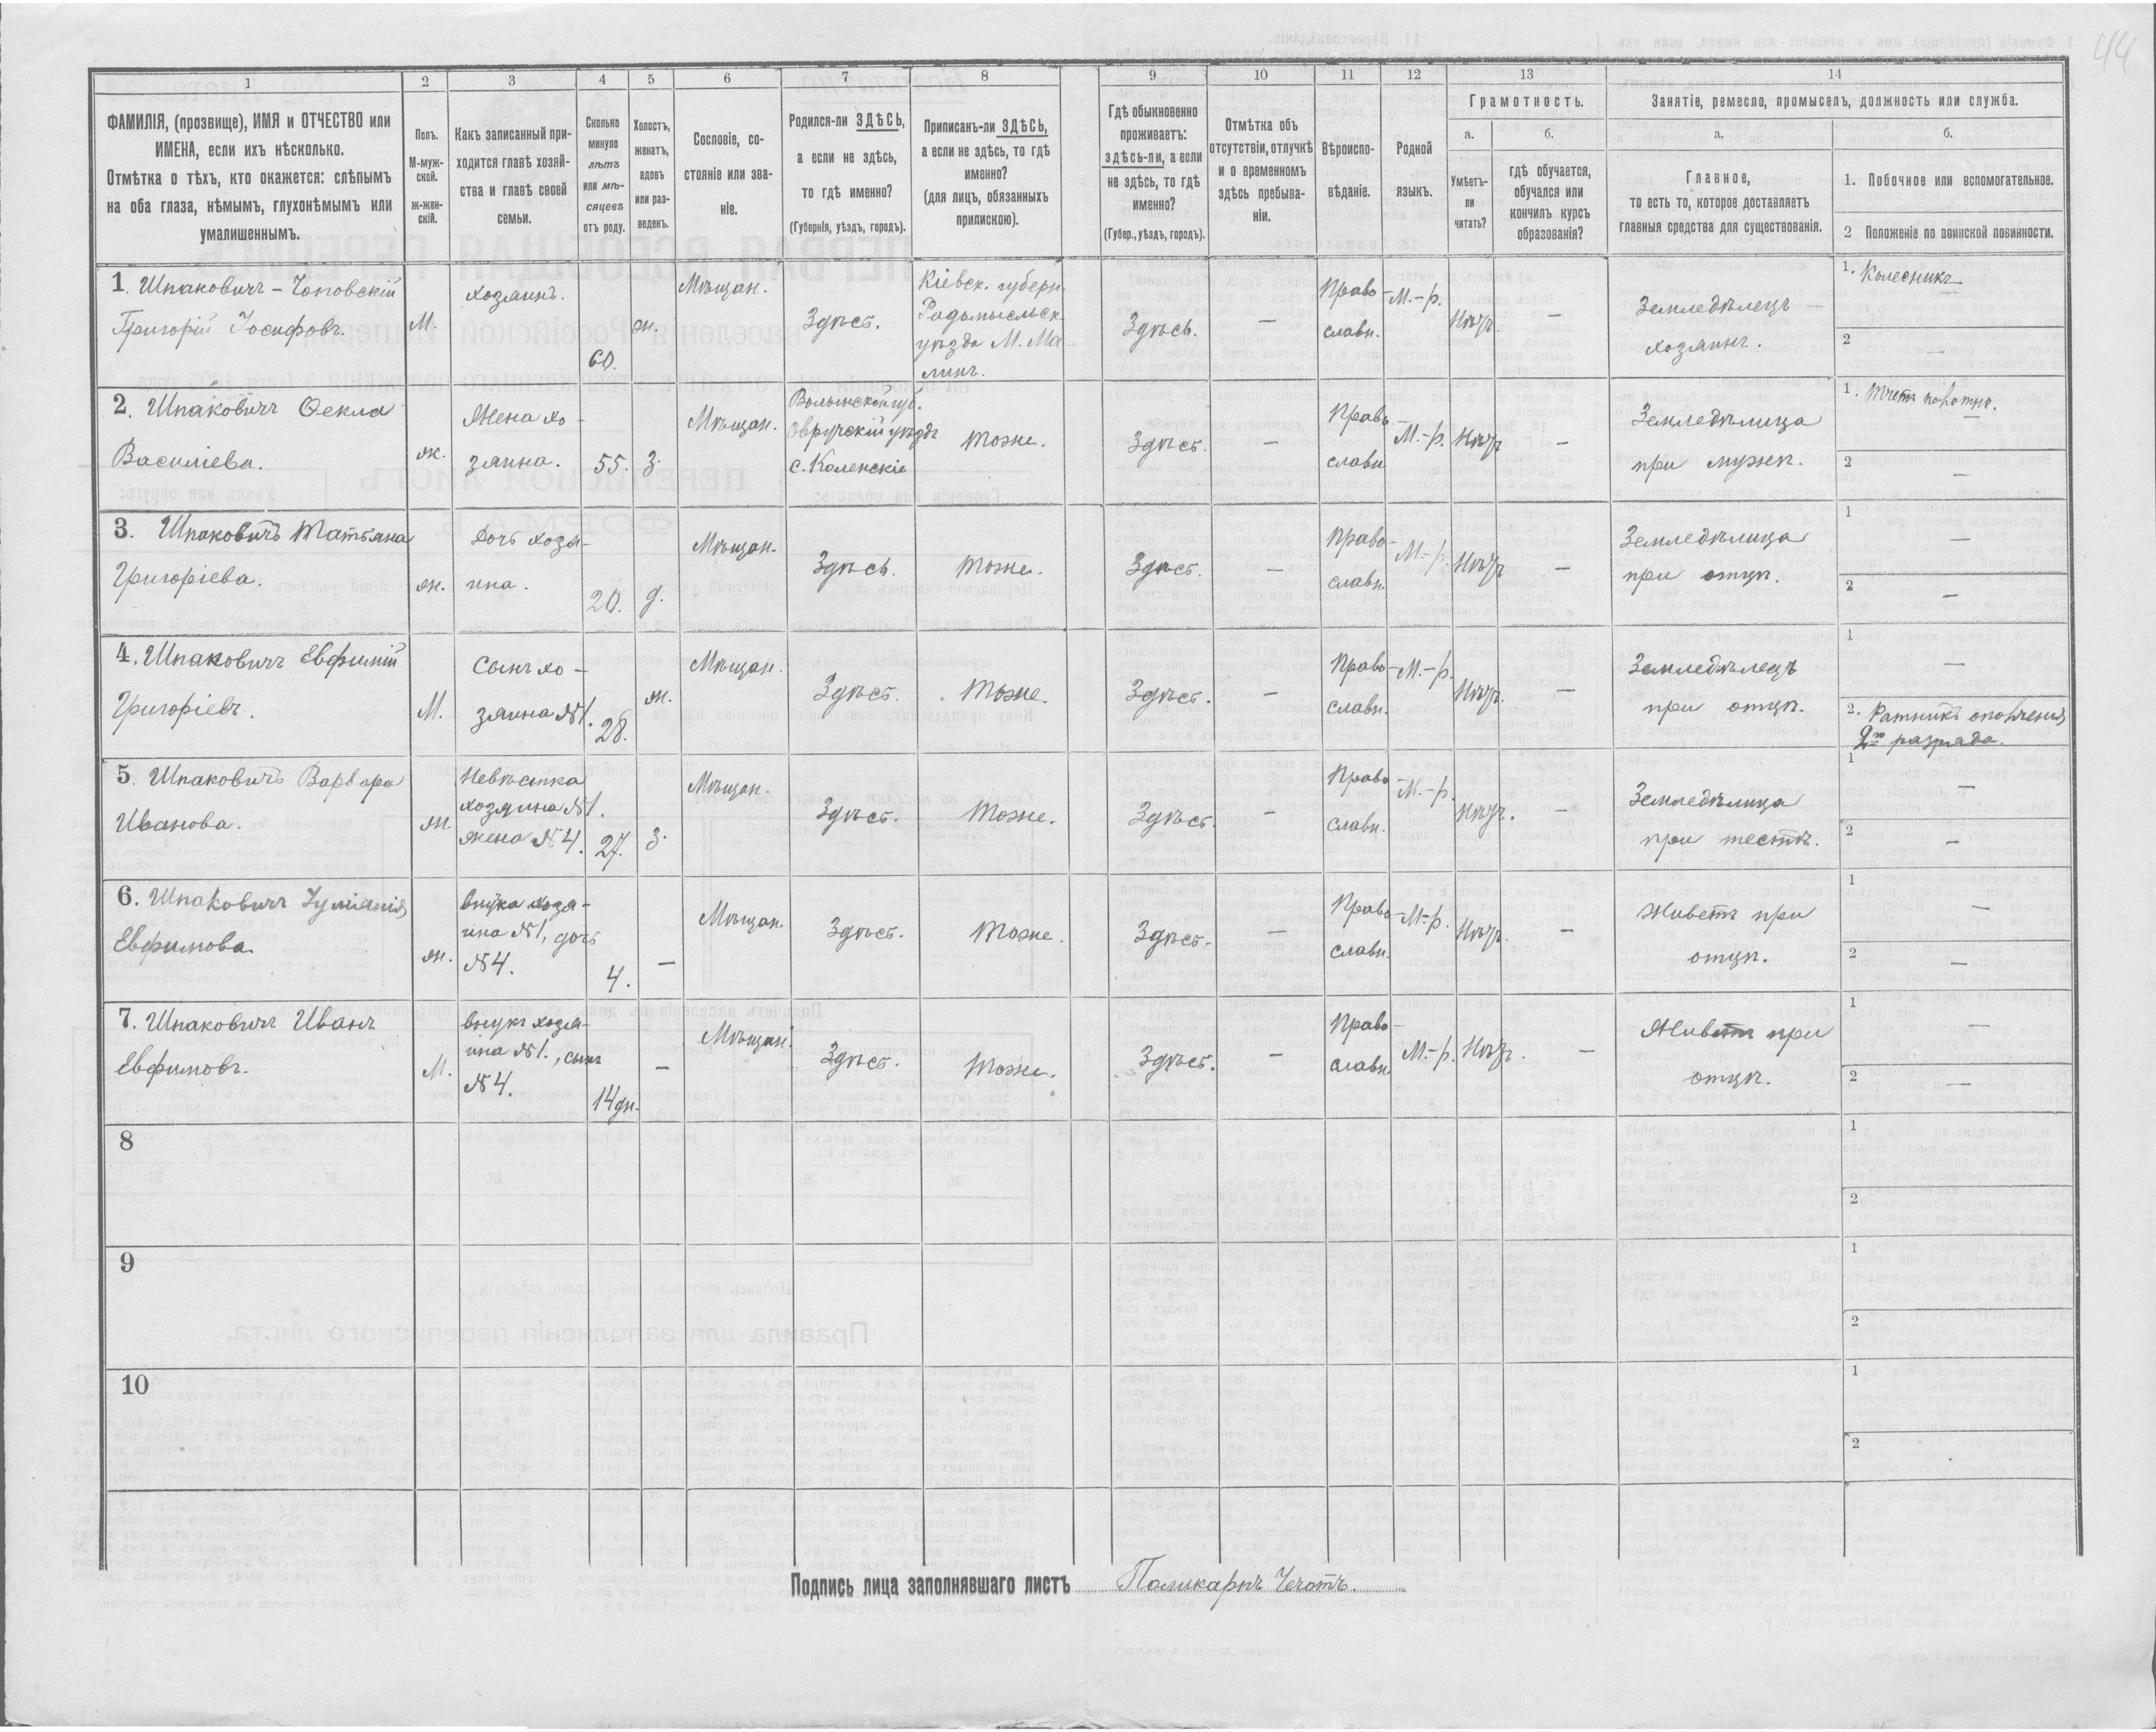 44
1
2
3
4
5
6
7
8
9
10
11
12
13
14
ФАМИЛІЯ, (прозвище), ИМЯ и ОТЧЕСТВО или
ИМЕНА, если ихъ нѣсколько.
Отмѣтка о тѣхъ, кто окажется: слѣпымъ
на оба глаза, нѣмымъ, глухонѣмымъ или
умалишеннымъ.
Полъ.
М-муж-
ской.
ж-жен-
скій.
Какъ записанный при-
ходится главѣ хозяй-
ства и главѣ своей
семьи.
Сколько
минуло
лѣтъ
или мѣ-
сяцевъ
отъ роду.
Холостъ,
женатъ,
вдовъ
или раз-
веденъ.
Сословіе, со-
стояніе или зва-
ніе.
Родился-ли ЗДѢСЬ,
а если не здѣсь,
то гдѣ именно?
(Губернія, уѣздъ, городъ).
Приписанъ-ли ЗДѢСЬ,
а если не здѣсь, то гдѣ
именно?
(для лицъ, обязанныхъ
припискою).
Гдѣ обыкновенно
проживаетъ:
здѣсь-ли, а если
не здѣсь, то гдѣ
именно?
(Губер., уѣздъ, городъ).
Отмѣтка объ
отсутствіи, отлучкѣ
и о временномъ
здѣсь пребыва-
ніи.
Вѣроиспо-
вѣданіе.
Родной
языкъ.
Грамотность.
а.
б.
Умѣетъ-
ли
читать?
гдѣ обучается,
обучался или
кончилъ курсъ
образованія?
Занятіе, ремесло, промыселъ, должность или служба.
а.
б.
Главное,
то есть то, которое доставляетъ
главныя средства для существованія.
1. Побочное или вспомогательное.
2 Положеніе по воинской повинности.
1. Шпаковичъ - Чоповскій
Григорій Іосифовъ.
М.
хозяинъ.
60.
ж.
Мѣщан.
Здѣсь.
Кіевск. губерн.
Радомысльск.
уѣзда М. Ма-
линъ.
Здѣсь.
—
Право-
славн.
М.-р.
Нѣтъ.
—
Земледѣлецъ
хозяинъ.
1. Колесникъ
2 —
2. Шпаковичъ Ѳекла
Василіева.
ж.
Жена хо-
зяина.
55.
з.
Мѣщан.
Волынской губ.
Овручскій уѣздъ
с. Каленскіе
Тоже.
Здѣсь.
—
Право-
славн.
М.-р.
Нѣтъ
—
Земледѣлица
при мужѣ.
1. Тчетъ полотна.
2 —
3. Шпаковичъ Татьяна
Григоріева.
ж.
Дочь хозя-
ина.
20.
д.
Мѣщан.
Здѣсь.
Тоже.
Здѣсь.
—
Право-
славн.
М.-р.
Нѣтъ
—
Земледѣлица
при отцѣ.
1 —
2 —
4. Шпаковичъ Евфимій
Григоріевъ.
М.
Сынъ хо-
зяина №1.
28.
ж.
Мѣщан.
Здѣсь.
Тоже.
Здѣсь.
—
Право-
славн.
М.-р.
Нѣтъ.
—
Земледѣлецъ
при отцѣ.
1 —
2. Ратникъ ополченія
2го разряда.
5. Шпаковичъ Варвара
Иванова.
ж
Невѣстка
хозяина №1.
жена №4.
27.
з.
Мѣщан.
Здѣсь.
Тоже.
Здѣсь.
—
Право-
славн.
М.-р.
Нѣтъ.
—
Земледѣлица
при тестѣ.
1 —
2 —
6. Шпаковичъ Іуліанія
Евфимова.
ж.
внука хозя-
ина №1, дочь
№4.
4.
—
Мѣщан.
Здѣсь.
Тоже.
Здѣсь.
—
Право-
славн.
М.-р.
Нѣтъ.
—
Живетъ при
отцѣ.
1 —
2 —
7. Шпаковичъ Иванъ
Евфимовъ.
М.
внукъ хозя-
ина №1., сынъ
№4.
14 дн.
—
Мѣщан.
Здѣсь.
Тоже.
Здѣсь.
—
Право-
славн.
М.-р.
Нѣтъ.
—
Живетъ при
отцѣ.
1 —
2 —
8
1
2
9
1
2
10
1
2
Подпись лица заполнявшаго листъ Поликарпъ Чехотъ.